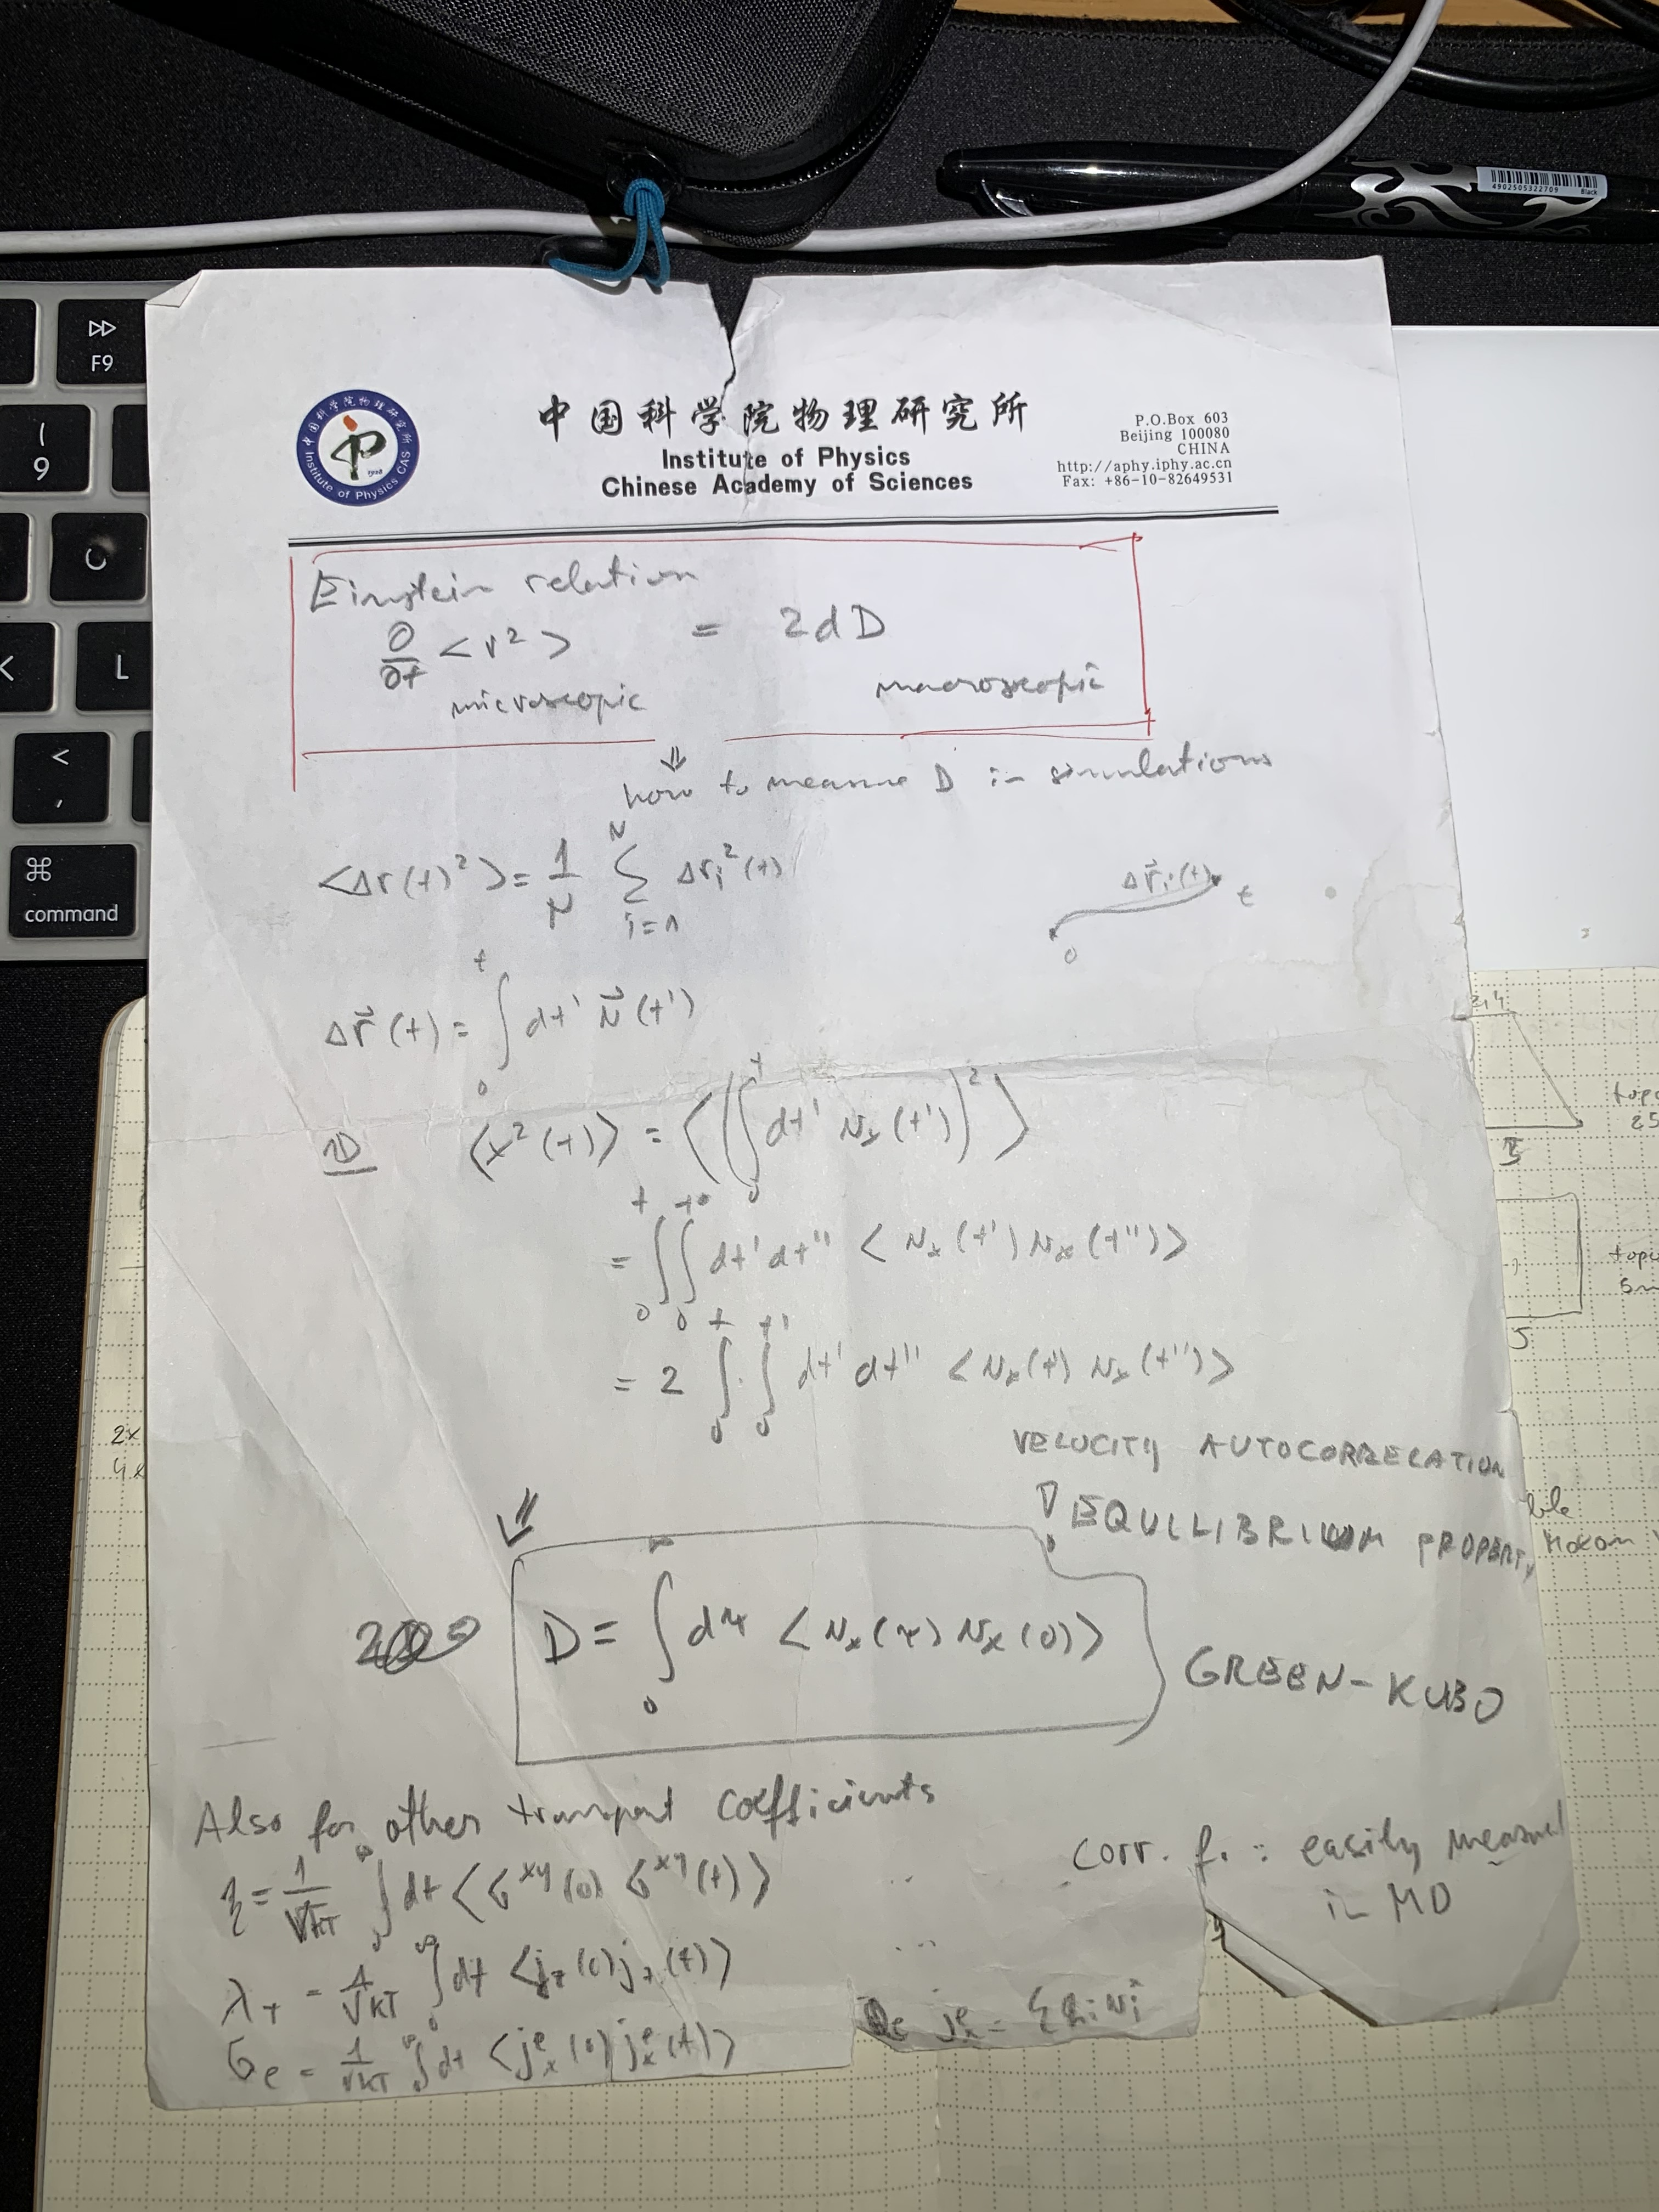 4902505322709 Black
F9
(
9
L
<
,
⌘
command
中国科学院物理研究所
Institute of Physics
Chinese Academy of Sciences
中国科学院物理研究所
1928
Institute of Physics CAS
P.O.Box 603
Beijing 100080
CHINA
http://aphy.iphy.ac.cn
Fax: +86-10-82649531
Einstein relation
∂/∂t <r²> = 2dD
microscopic macroscopic
⇓
how to measure D in simulations
<Δr(t)²> = 1/N Σ_{i=1}^{N} Δr_i²(t)
Δr⃗_i(t)
0 t
Δr⃗(t) = ∫_0^t dt' v⃗(t')
1D <x²(t)> = <(∫_0^t dt' v_x(t'))²>
= ∫_0^t ∫_0^t dt' dt'' <v_x(t') v_x(t'')>
= 2 ∫_0^t ∫_0^{t'} dt' dt'' <v_x(t') v_x(t'')>
VELOCITY AUTOCORRELATION
! EQUILIBRIUM PROPERTY
⇓
D = ∫_0 dτ <v_x(τ) v_x(0)>
GREEN-KUBO
Also for other transport coefficients
η = 1/VkT ∫_0^∞ dt <σ^{xy}(0) σ^{xy}(t)>
corr. f. : easily measured
in MD
λ_T = 1/VkT ∫_0^∞ dt <j_z(0) j_z(t)>
σ_e = 1/VkT ∫_0^∞ dt <j_x^e(0) j_x^e(t)>
j_x^e = Σ q_i v_i
2x
4x
5